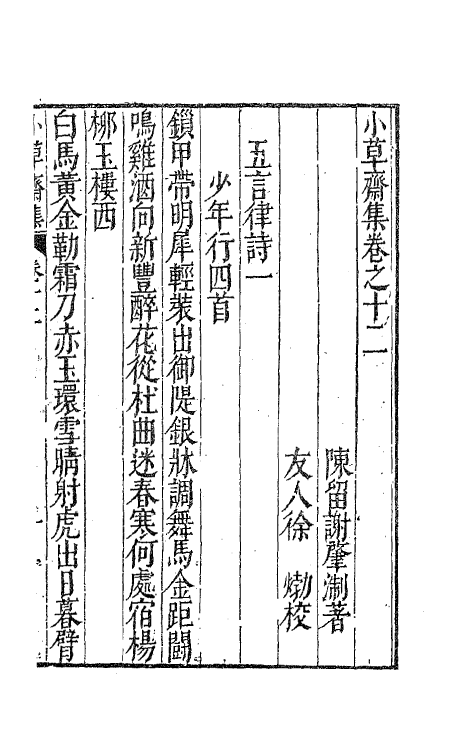 小草齋集卷之十二
陳留謝肇淛著
友人徐𤊹校
五言律詩一
少年行四首
鎖甲帶明犀輕裝出御隄銀牀調舞馬金距鬪
鳴雞酒向新豐醉花從杜曲迷春寒何處宿楊
柳玉樓西
白馬黃金勒霜刀赤玉環雪晴射虎出日暮臂
小草齋集